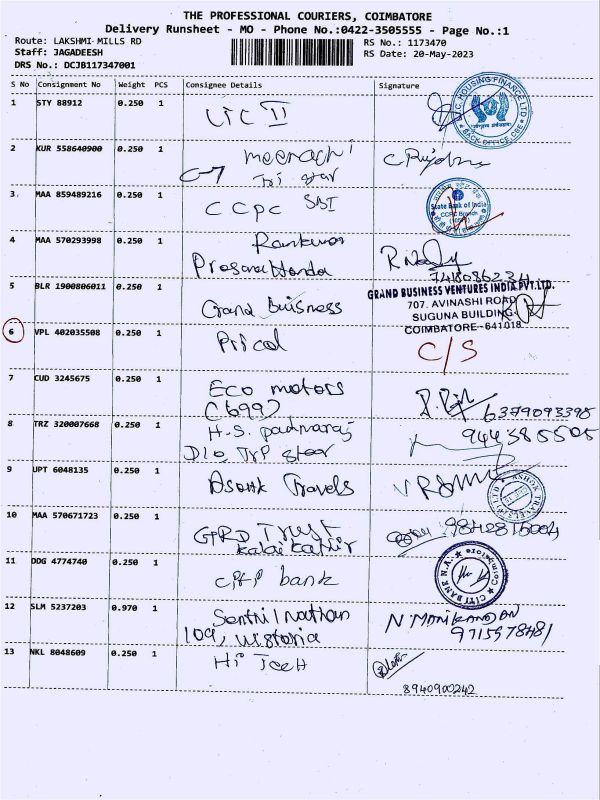 THE PROFESSIONAL COURIERS, COIMBATORE
Delivery Runsheet - MO - Phone No.:0422-3505555 - Page No.:1
Route: LAKSHMI MILLS RD
RS No.: 1173470
Staff: JAGADEESH
RS Date: 20-May-2023
DRS No.: DCJB117347001
S No Consignment No Weight PCS Consignee Details Signature
1 STY 88912 0.250 1 LIC II
HOUSING FINANCE LTD.
BACK OFFICE CBE
2 KUR 558640900 0.250 1 meenachi
C-7 Tri star
3. MAA 859489216 0.250 1 CCPC SBI
State Bank of India
CCPC Branch
4 MAA 570293998 0.250 1 Ramkumar
Prasanna Honda
5 BLR 1900806011 0.250 1 Grand Buisness
GRAND BUSINESS VENTURES INDIA PVT.LTD.
707, AVINASHI ROAD
SUGUNA BUILDING
COIMBATORE-641018
6 VPL 402035508 0.250 1 Pricol C/S
7 CUD 3245675 0.250 1 Eco motors
(6992) 6379093395
8 TRZ 320007668 0.250 1 H.S. padmaraj
9 UPT 6048135 0.250 1 Asohk Travels
ASHOK TRAVELS
10 MAA 570671723 0.250 1 GRD Trust
11 DDG 4774740 0.250 1 citi bank
CITI BANK N.A. Coimbatore
12 SLM 5237203 0.970 1 Senthil nathan
109, victoria
N MANIKANDAN
9715978481
13 NKL 8048609 0.250 1 Hi Tech
8940900242